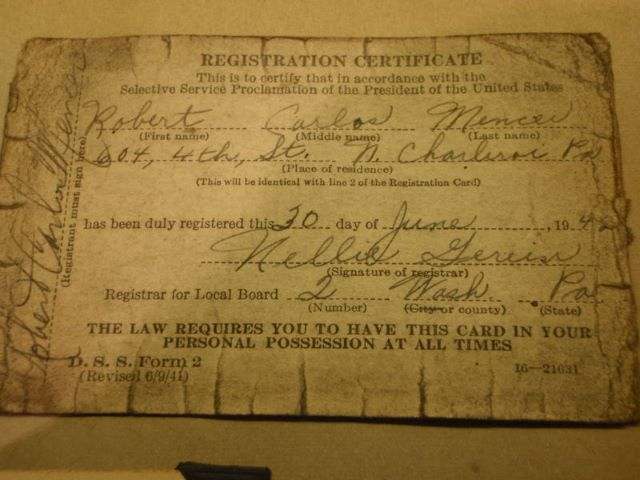 REGISTRATION CERTIFICATE
This is to certify that in accordance with the
Selective Service Proclamation of the President of the United States
Robert Carlos Mencer
(First name) (Middle name) (Last name)
604, 4th, St. N. Charleroi Pa
(Place of residence)
(This will be identical with line 2 of the Registration Card)
has been duly registered this 30 day of June, 1942
Nellie
(Signature of registrar)
Registrar for Local Board 2 Wash Pa
(Number) (City or county) (State)
THE LAW REQUIRES YOU TO HAVE THIS CARD IN YOUR
PERSONAL POSSESSION AT ALL TIMES
D. S. S. Form 2
(Revised 6/9/41)
16—21631
Robert Carlos Mencer
(Registrant must sign here)